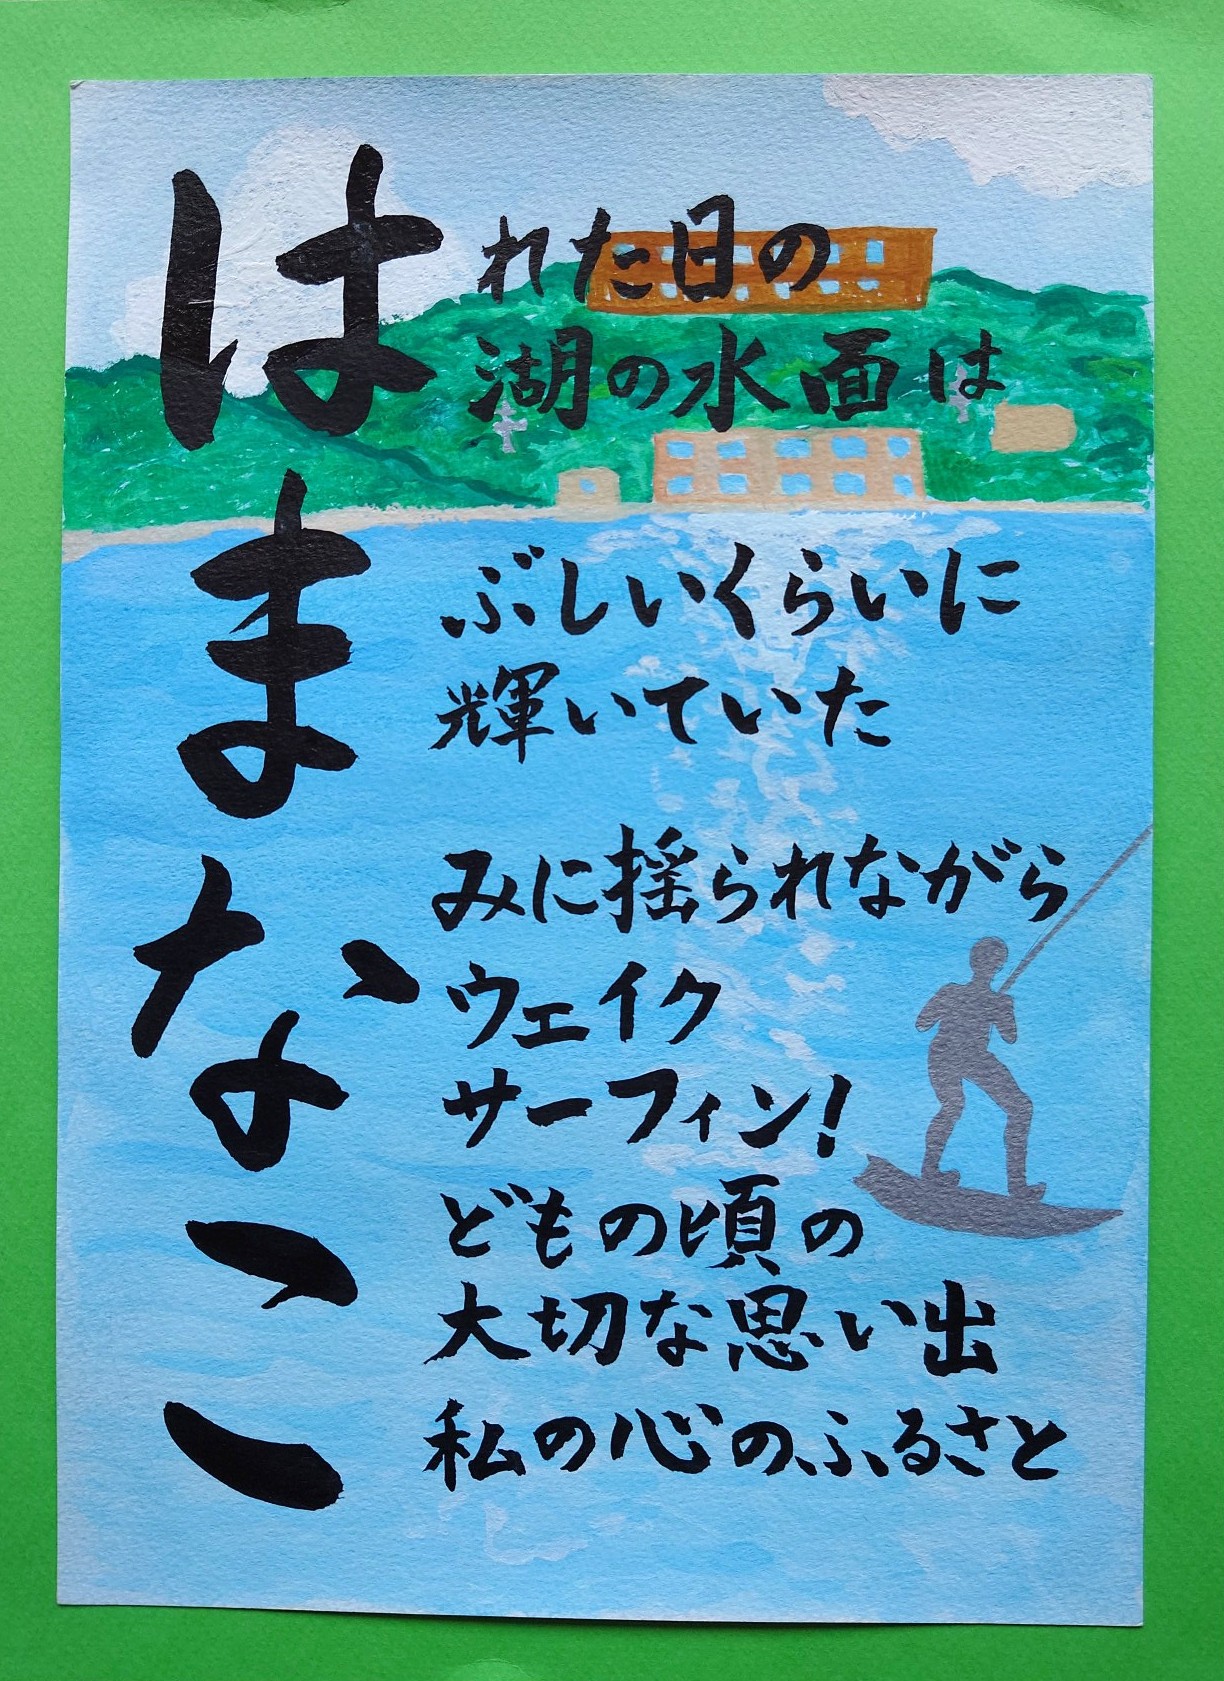 はれた日の
湖の水面は
まぶしいくらいに
輝いていた
なみに揺られながら
ウェイク
サーフィン!
こどもの頃の
大切な思い出
私の心のふるさと